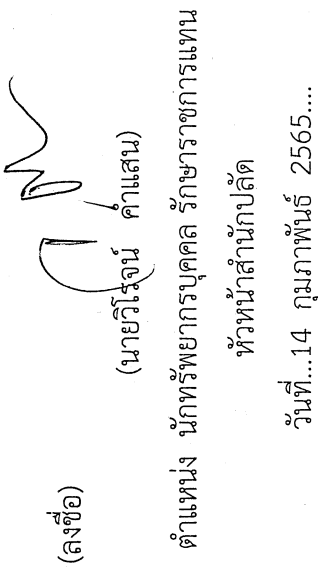 (ลงชื่อ)
(นายวิโรจน์ คำแสน)
ตำแหน่ง นักทรัพยากรบุคคล รักษาราชการแทน
หัวหน้าสำนักปลัด
วันที่...14 กุมภาพันธ์ 2565....